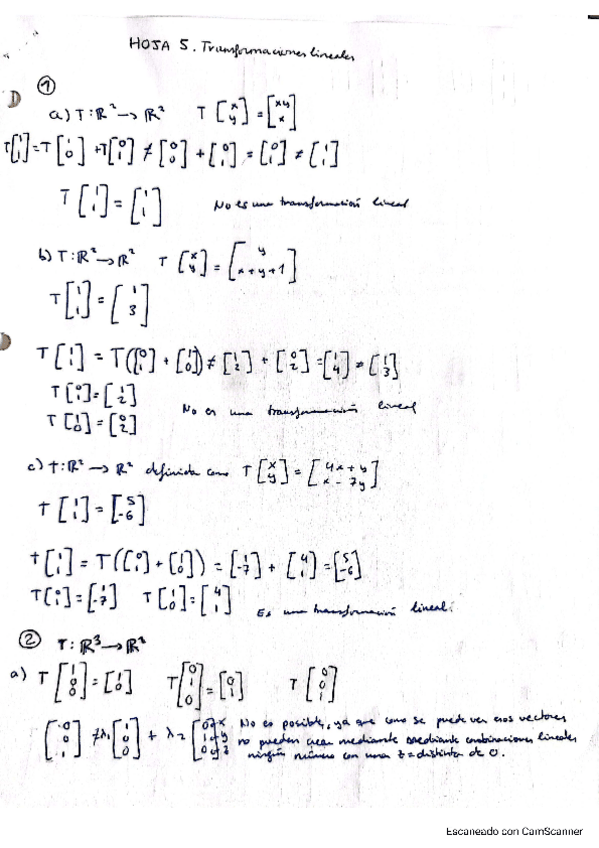 HOJA 5. Transformaciones lineales
①
a) T: ℝ² → ℝ² T [x y] = [xy x]
T[1 1] = T[1 0] + T[0 1] ≠ [0 0] + [0 1] = [0 1] ≠ [1 1]
T [1 1] = [1 1] No es una transformación lineal
b) T: ℝ² → ℝ² T [x y] = [y x+y+1]
T [1 1] = [1 3]
T [1 1] = T([0 1] + [1 0]) ≠ [1 2] + [0 2] = [1 4] ≠ [1 3]
T [0 1] = [1 2]
T [1 0] = [0 2] No es una transformación lineal
c) t: ℝ² → ℝ² definida como T [x y] = [4x+y x-7y]
t [1 1] = [5 -6]
t [1 1] = T([0 1] + [1 0]) = [1 -7] + [4 1] = [5 -6]
T [0 1] = [1 -7] T [1 0] = [4 1] Es una transformación lineal
② T: ℝ³ → ℝ²
a) T [1 0 0] = [1 0] T [0 1 0] = [0 1] T [0 0 1]
[0 0 1] ≠ λ₁ [1 0 0] + λ₂ No es posible, ya que como se puede ver esos vectores
no pueden crear mediante combinaciones lineales
ningún número con una z = distinta de 0.
Escaneado con CamScanner